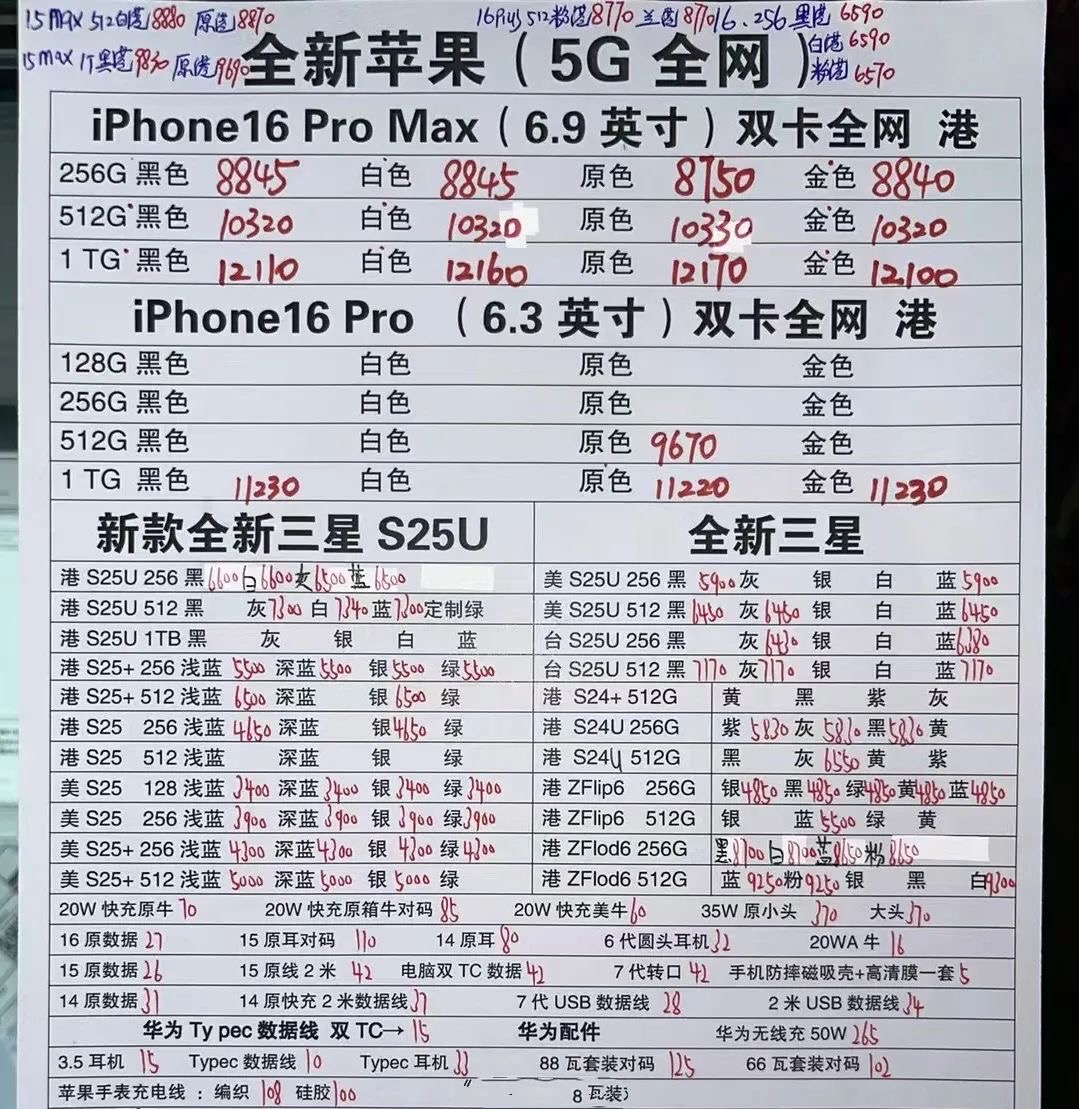 15 max 512白港8880 原港8870 16Plus 512粉港8770 兰港8770 16.256 黑港6590
白港6590
15max 1T黑港9830 原港9690
粉港6570
全新苹果(5G 全网)
iPhone16 Pro Max(6.9 英寸)双卡全网 港
256G 黑色 8845 白色 8845 原色 8750 金色 8840
512G 黑色 10320 白色 10320 原色 10330 金色 10320
1 TG 黑色 12110 白色 12160 原色 12170 金色 12100
iPhone16 Pro (6.3 英寸)双卡全网 港
128G 黑色 白色 原色 金色
256G 黑色 白色 原色 金色
512G 黑色 白色 原色 9670 金色
1 TG 黑色 11230 白色 原色 11220 金色 11230
新款全新三星 S25U 全新三星
港 S25U 256 黑6600白6600灰6500蓝6500 美 S25U 256 黑 5900灰 银 白 蓝5900
港 S25U 512 黑 灰7300 白7340蓝7300定制绿 美 S25U 512 黑6450 灰6460 银 白 蓝6450
港 S25U 1TB 黑 灰 银 白 蓝 台 S25U 256 黑 灰6430 银 白 蓝6380
港 S25+ 256 浅蓝 5500 深蓝5500 银5500 绿5500 台 S25U 512 黑7170 灰7170 银 白 蓝7170
港 S25+ 512 浅蓝 6500 深蓝 银6500 绿 港 S24+ 512G 黄 黑 紫 灰
港 S25 256 浅蓝 4650 深蓝 银4650 绿 港 S24U 256G 紫 5830 灰 5830 黑5830 黄
港 S25 512 浅蓝 深蓝 银 绿 港 S24U 512G 黑 灰 6550 黄 紫
美 S25 128 浅蓝 3400 深蓝3400 银3400 绿3400 港 ZFlip6 256G 银4850 黑4850 绿4850黄4850蓝4850
美 S25 256 浅蓝 3900 深蓝3900 银3900 绿3900 港 ZFlip6 512G 银 蓝 5500 绿 黄
美 S25+ 256 浅蓝 4300 深蓝4300 银 4300 绿4300 港 ZFlod6 256G 黑8700白8700蓝8650粉8650
美 S25+ 512 浅蓝 5000 深蓝5000 银 5000 绿 港 ZFlod6 512G 蓝 9250粉9250银 黑 白9300
20W 快充原牛70 20W 快充原箱牛对码85 20W 快充美牛60 35W 原小头 370 大头370
16 原数据 27 15 原耳对码 110 14 原耳80 6 代圆头耳机32 20WA 牛 16
15 原数据26 15 原线 2 米 42 电脑双 TC 数据42 7 代转口 42 手机防摔磁吸壳+高清膜一套5
14 原数据31 14 原快充 2 米数据线37 7 代 USB 数据线 28 2 米 USB 数据线34
华为 Ty pec 数据线 双 TC→ 15 华为配件 华为无线充 50W 265
3.5 耳机 15 Typec 数据线 10 Typec 耳机 33 88 瓦套装对码 125 66 瓦套装对码 102
苹果手表充电线:编织 108 硅胶100 8 瓦装